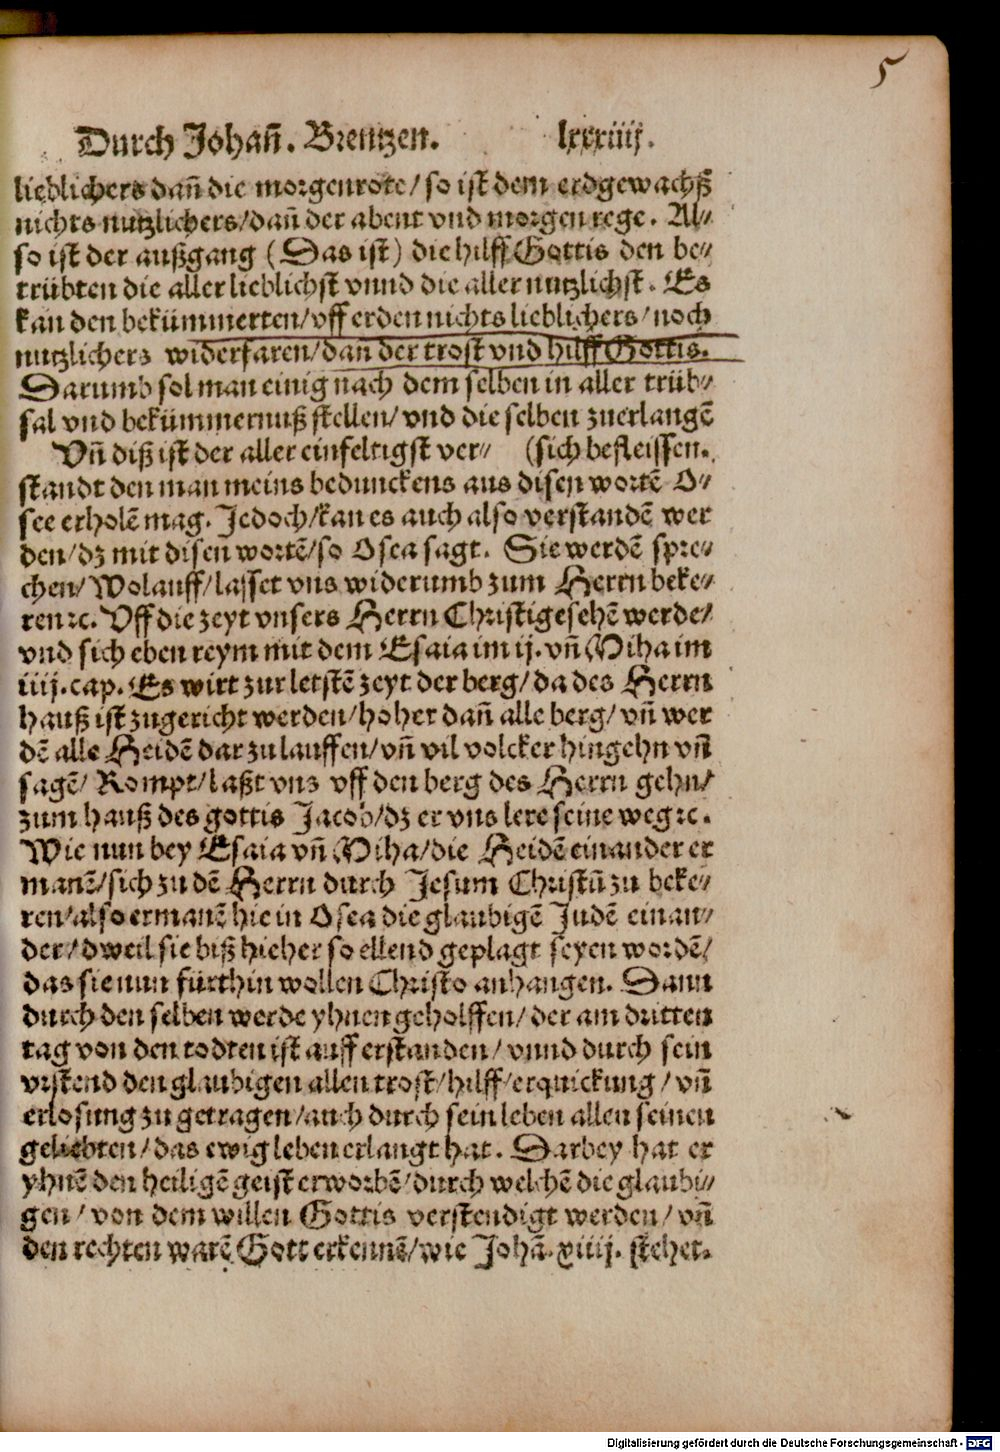 5
Durch Johañ. Brentzen. lxxxiiij.
lieblichers dañ die morgenrote/ so ist dem erdgewachß
nichts nutzlichers/dañ der abent vnd morgen rege. Al⸗
so ist der außgang (Das ist) die hilff Gottis den be⸗
trübten die aller lieblichst vnnd die aller nutzlichst. Es
kan den bekümmerten/vff erden nichts lieblichers/noch
nutzlichers widerfaren/dañ der trost vnd hilff Gottis.
Darumb sol man einig nach dem selben in aller trüb⸗
sal vnd bekümmernuß stellen/ vnd die selben zuerlangē
Vñ diß ist der aller einfeltigst ver⸗ (sich befleissen.
standt den man meins bedunckens aus disen wortē O⸗
see erholē mag. Jedoch/kan es auch also verstandē wer
den/dz mit disen wortē/so Osea sagt. Sie werdē spre⸗
chen/ Wolauff/lasset vns widerumb zum Herrn beke⸗
ren ꝛc. Vff die zeyt vnsers Herrn Christi gesehē werde/
vnd sich eben reym mit dem Esaia im ij. vñ Miha im
iiij. cap. Es wirt zur letstē zeyt der berg/da des Herrn
hauß ist zugericht werden/hoher dañ alle berg/vñ wer
dē alle Heidē dar zu lauffen/vñ vil volcker hingehn vñ
sagē/ Kompt/laßt vns vff den berg des Herrn gehn/
zum hauß des gottis Jacob/dz er vns lere seine weg ꝛc.
Wie nun bey Esaia vñ Miha/die Heidē einander er
manē/sich zu dē Herrn durch Jesum Christū zu beke⸗
ren/also ermanē hie in Osea die glaubigē Judē einan⸗
der/dweil sie biß hieher so ellend geplagt seyen wordē/
das sie nun fürthin wollen Christo anhangen. Dann
durch den selben werde yhnen geholffen/ der am dritten
tag von den todten ist aufferstanden/vnnd durch sein
vrstend den glaubigen allen trost/hilff/erquickung/vñ
erlosung zu getragen/auch durch sein leben allen seinen
geliebten/das ewig leben erlangt hat. Darbey hat er
yhnē den heiligē geist erworbē/durch welchē die glaubi⸗
gen/ von dem willen Gottis verstendigt werden/vñ
den rechten warē Gott erkennē/wie Johā. xiiij. stehet.
Digitalisierung gefördert durch die Deutsche Forschungsgemeinschaft - DFG